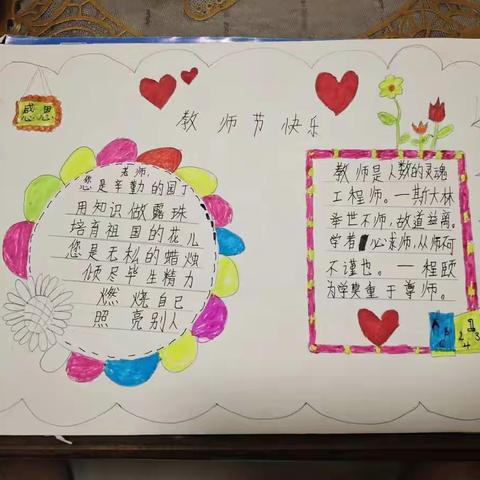 感恩
教师节快乐
老师,
您是辛勤的园丁
用知识做露珠
培育祖国的花儿
您是无私的蜡烛
倾尽毕生精力
燃烧自己
照亮别人
教师是人数的灵魂
工程师。一斯大林
举世不师,故道益离。
学者必求师,从师不
不谨也。一程颐
为学莫重于尊师。
A
B
1
2
3
4